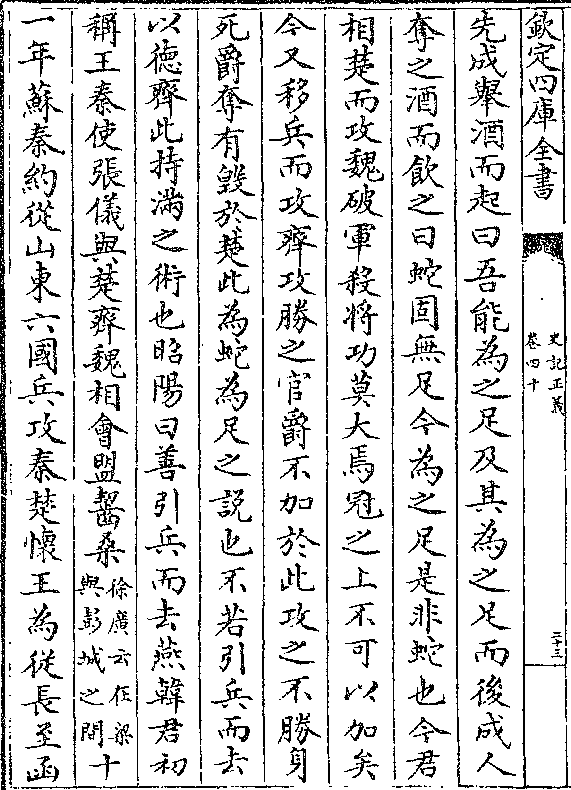 欽定四庫全書
史記正義
卷四十
二十三
先成舉酒而起曰吾能為之足及其為之足而後成人
奪之酒而飲之曰蛇固無足今為之足是非蛇也今君
相楚而攻魏破軍殺將功莫大焉冠之上不可以加矣
今又移兵而攻齊攻勝之官爵不加於此攻之不勝身
死爵奪有毀於楚此為蛇為足之說也不若引兵而去
以德齊此持滿之術也昭陽曰善引兵而去燕韓君初
稱王秦使張儀與楚齊魏相會盟齧桑徐廣云在梁與彭城之間十
一年蘇秦約從山東六國兵攻秦楚懷王為從長至函